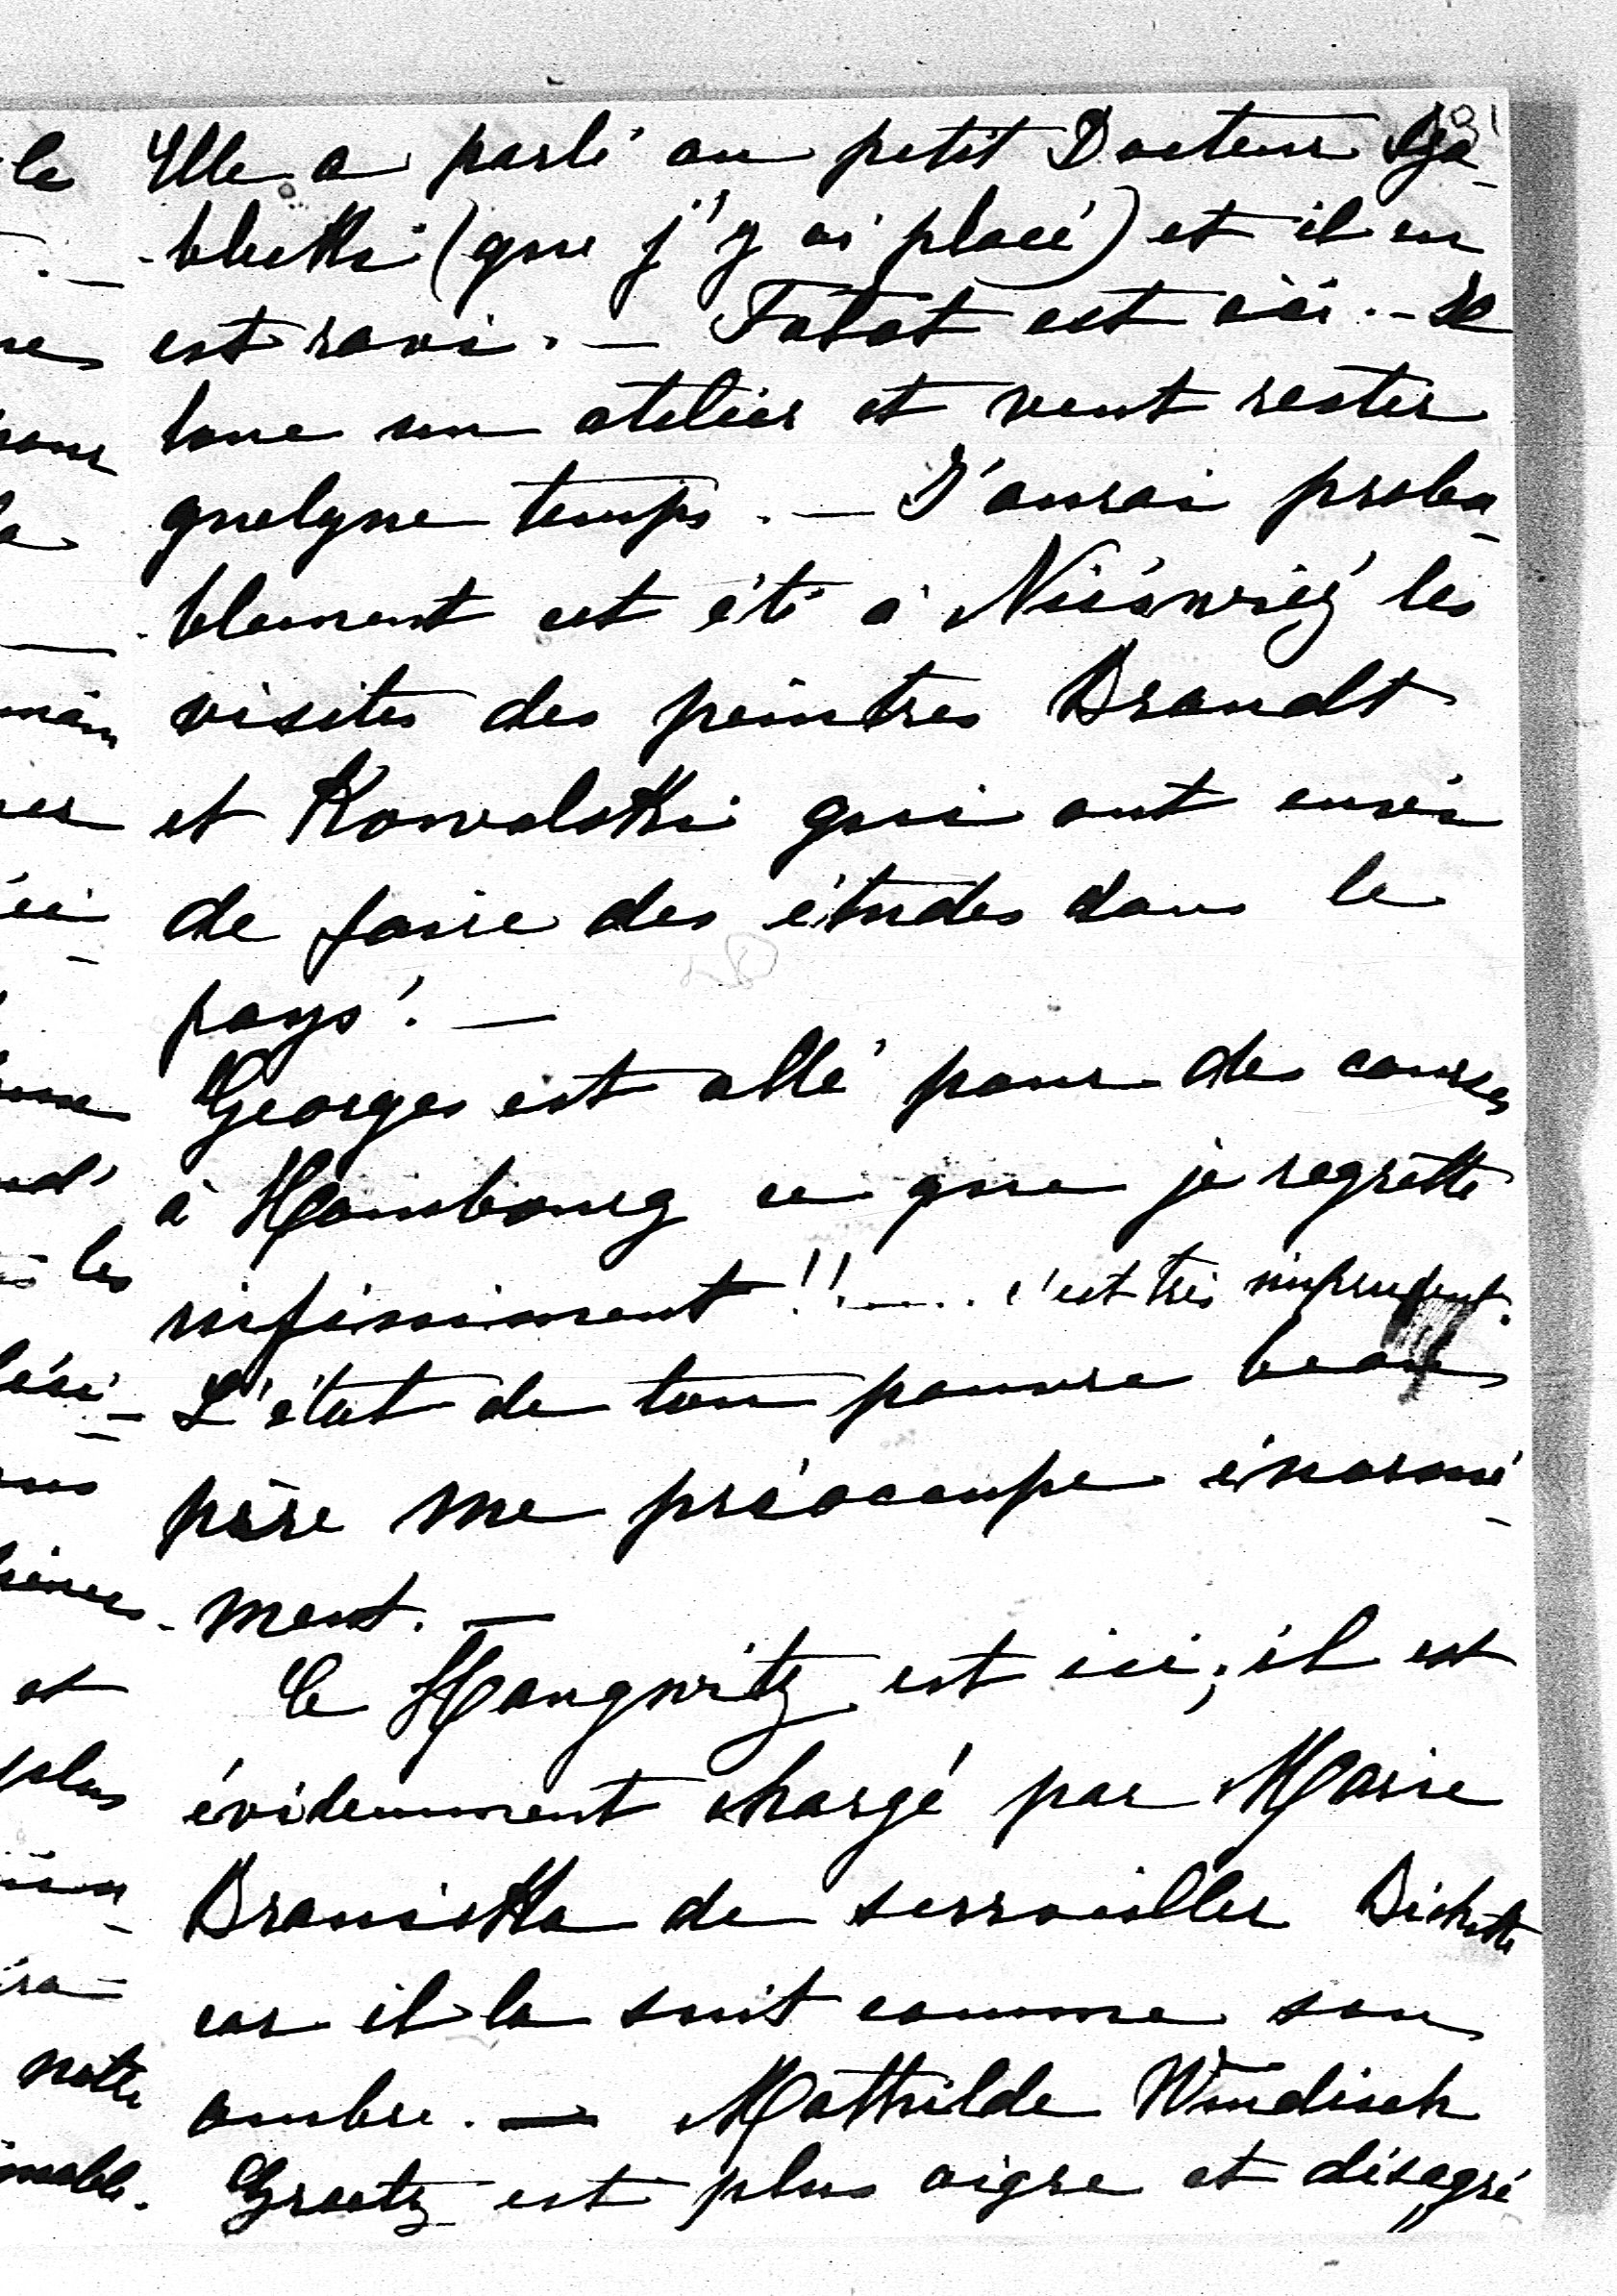 Elle a parlé au petit Docteur Ja-
-blecki (que j'y ai placé) et il en
est ravi. — Fałat est ici. — Il
loue un atelier et veut rester
quelque temps. — J'aurai proba-
-blement cet été à Nieśwież les
visites des peintres Brandt
et Kowalski qui ont envie
de faire des études dans le
pays! —
Georges est allé pour des courses
à Hambourg ce que je regrette
infiniment!! .... c'est très imprudent.
L'état de ton pauvre beau
père me préoccupe énormé-
-ment. —
Le Haugwitz est ici; il est
évidemment chargé par Marie
Branicka de serrveiller Bichette
car il la suit comme son
ombre. — Mathilde Windisch
Graetz est plus aigre et désagré